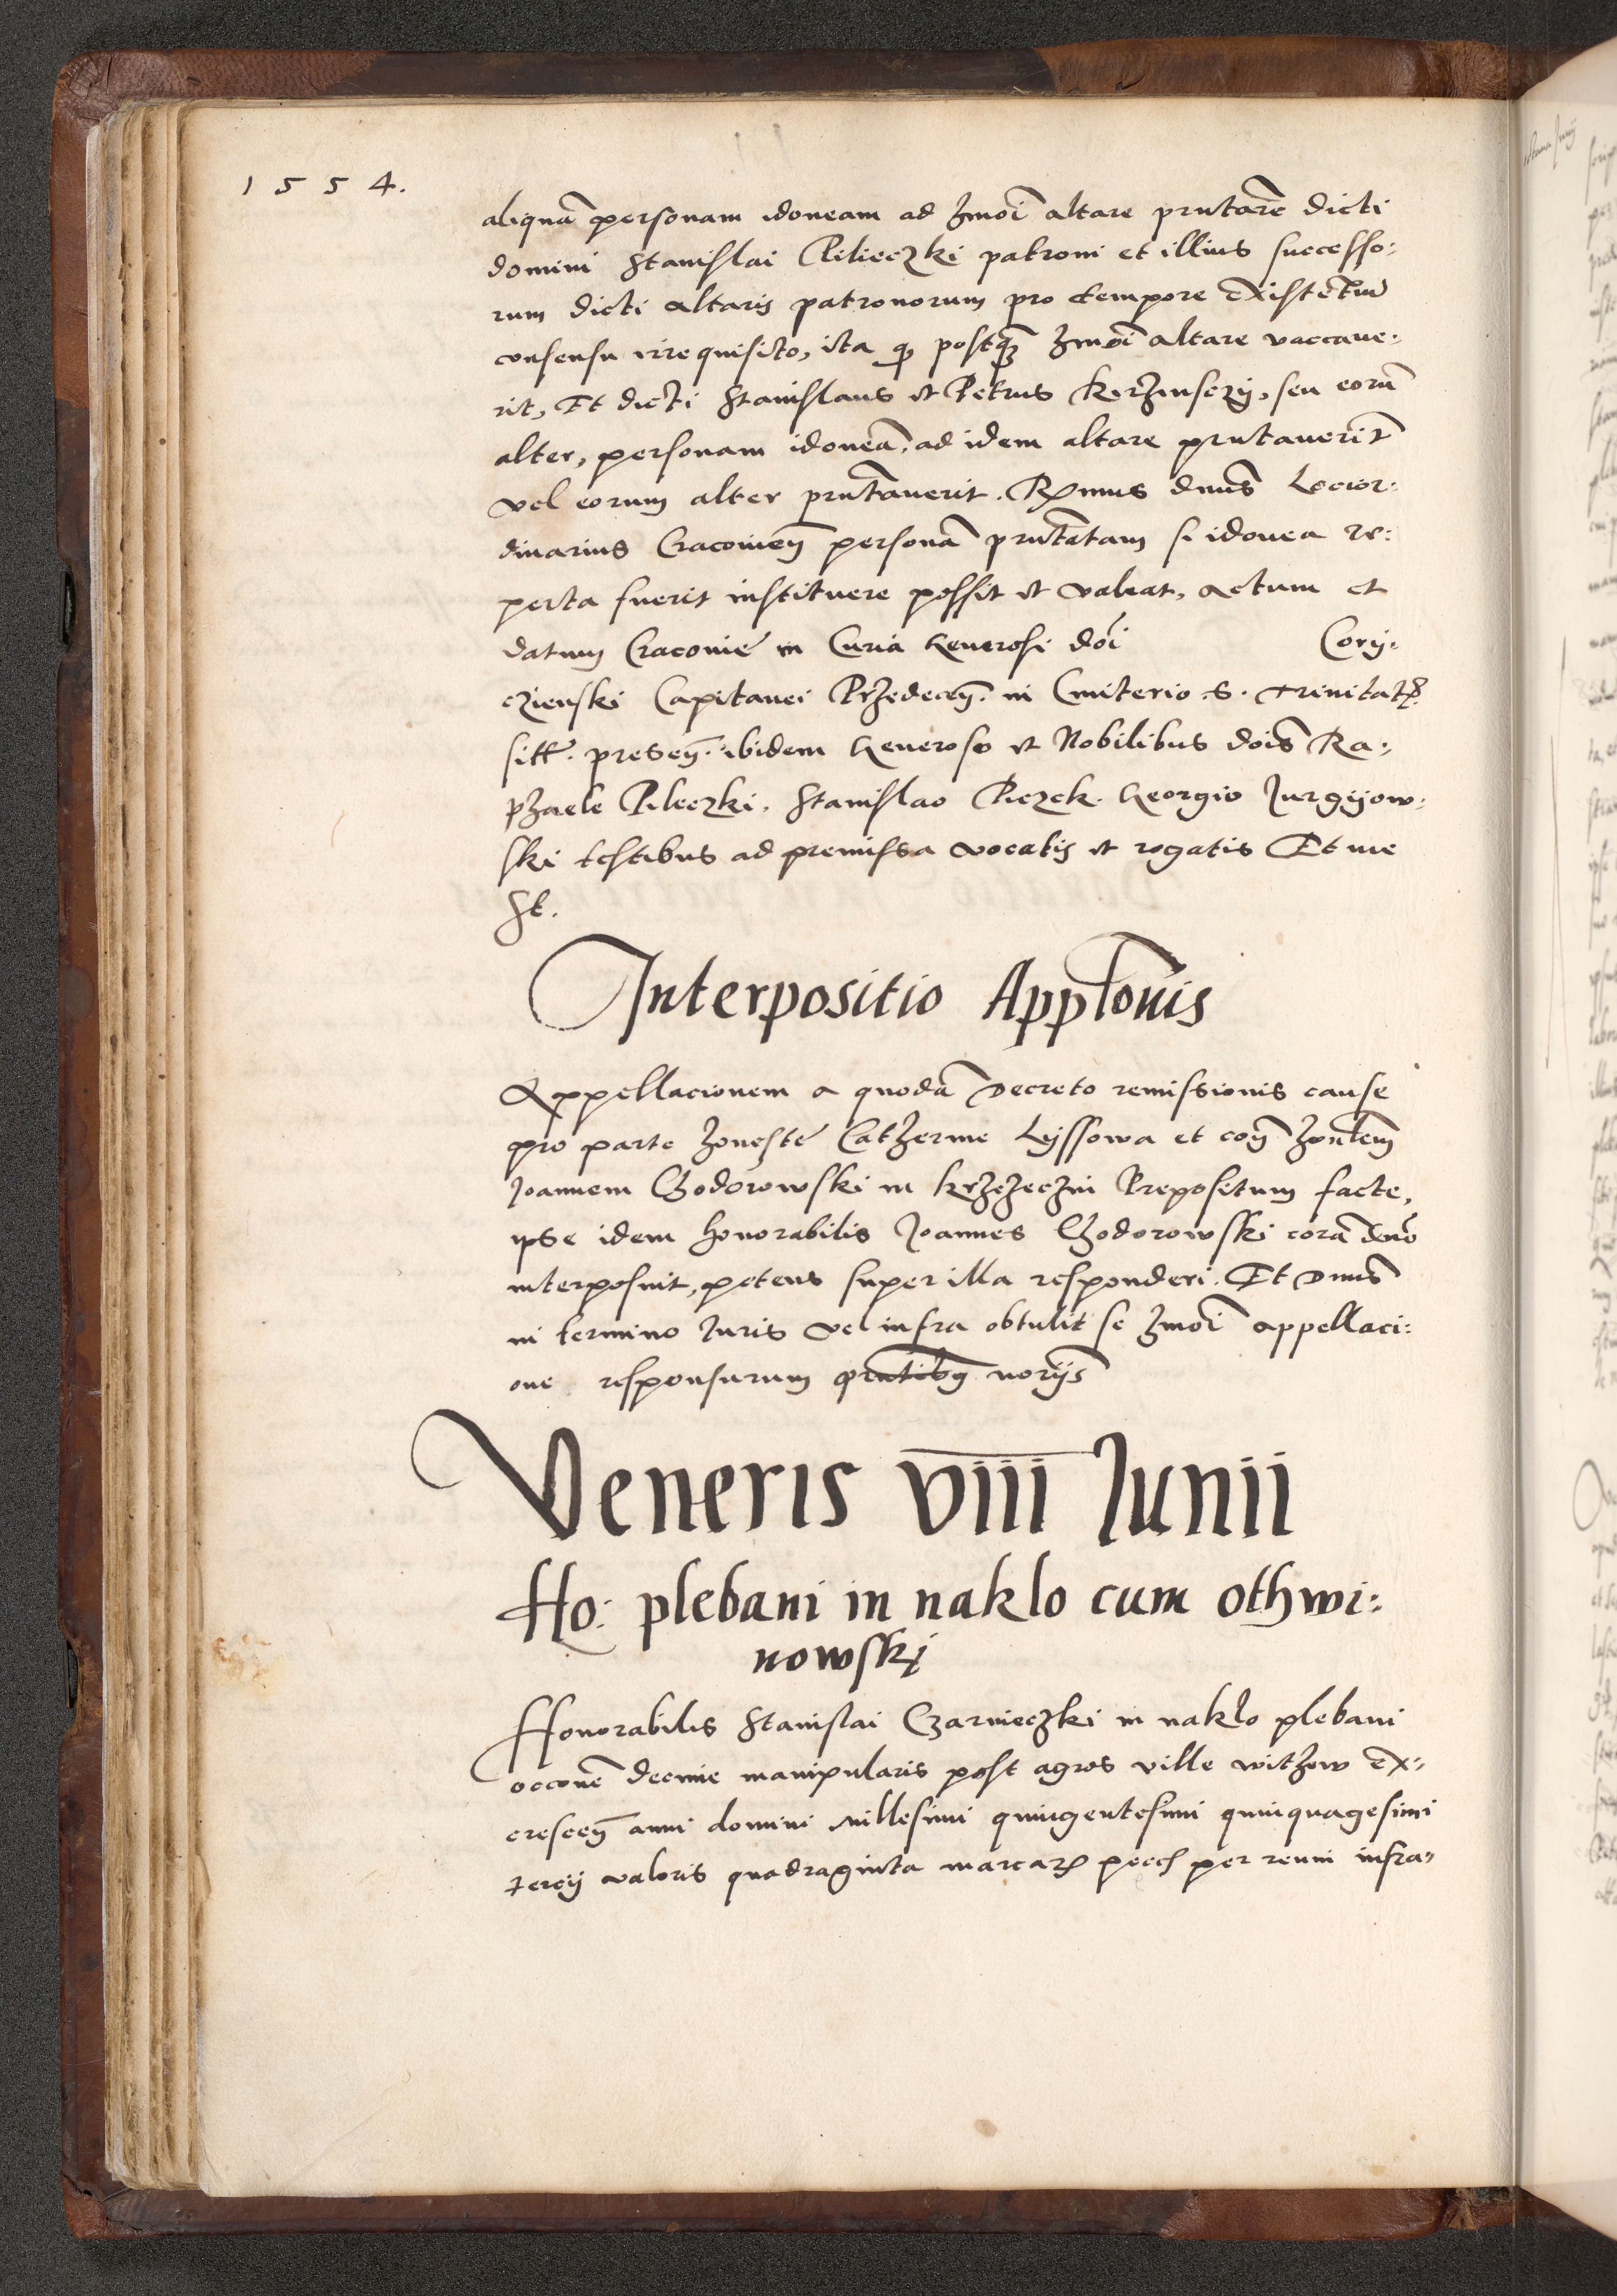 1554.
aliquā personam idoneam ad hmōi altare prntare dicti
domini Stanislai Pilieczki patroni et illius successo:
rum dicti altaris patronorum pro tempore existētiū
consensu irrequisito, ita q̨ postq̄ hmōi altare vaccaue:
rit, Et dicti Stanislaus et Petrus Kerzensczÿ, seu eorū
alter, personam idoneā, ad idem altare prntauerīt
vel eorum alter prntauerit. Rmus dnūs Locior:
dinarius Cracovieñ personā prntatam si idonea re:
perta fuerit instituere possit et valeat, Actum et
datum Cracovie in Curia Generosi dōi Corÿ:
czienski Capitanei Przedeceñ. in Cmiterio S. Trinitatꝭ
sitt. preseñ. ibidem Generoso et Nobilibus dōis Ra:
phaele Pileczki, Stanislao Piczek. Georgio Jurgÿow:
ski testibus ad premissa vocatis et rogatis Et me
St.
Interpositio Appl̄onis
Appellacionem a quodā Decreto remissionis cause
pro parte honeste Catherine Lÿssowa et coñ honlem
Joannem Chodorowski in Krzczeczni Prepositum facte,
ipse idem honorabilis Joannes Chodorowski corā dnō
interposuit, petens super illa responderi. Et Dnūs
in termino Juris vel infra obtulit se hmōi appellaci:
one responsurum prntibꝫ norÿs
Veneris viii Junii
Ho: plebani in naklo cum othwi:
nowski
Honorabilis Stanislai Czarnieczki in naklo plebani
occōne decime manipularis post agros ville withow ex:
cresceñ anni domini millesimi quingentesimi quinquagesimi
tercÿ valoris quadraginta marcaꝝ pecch per reum infra: